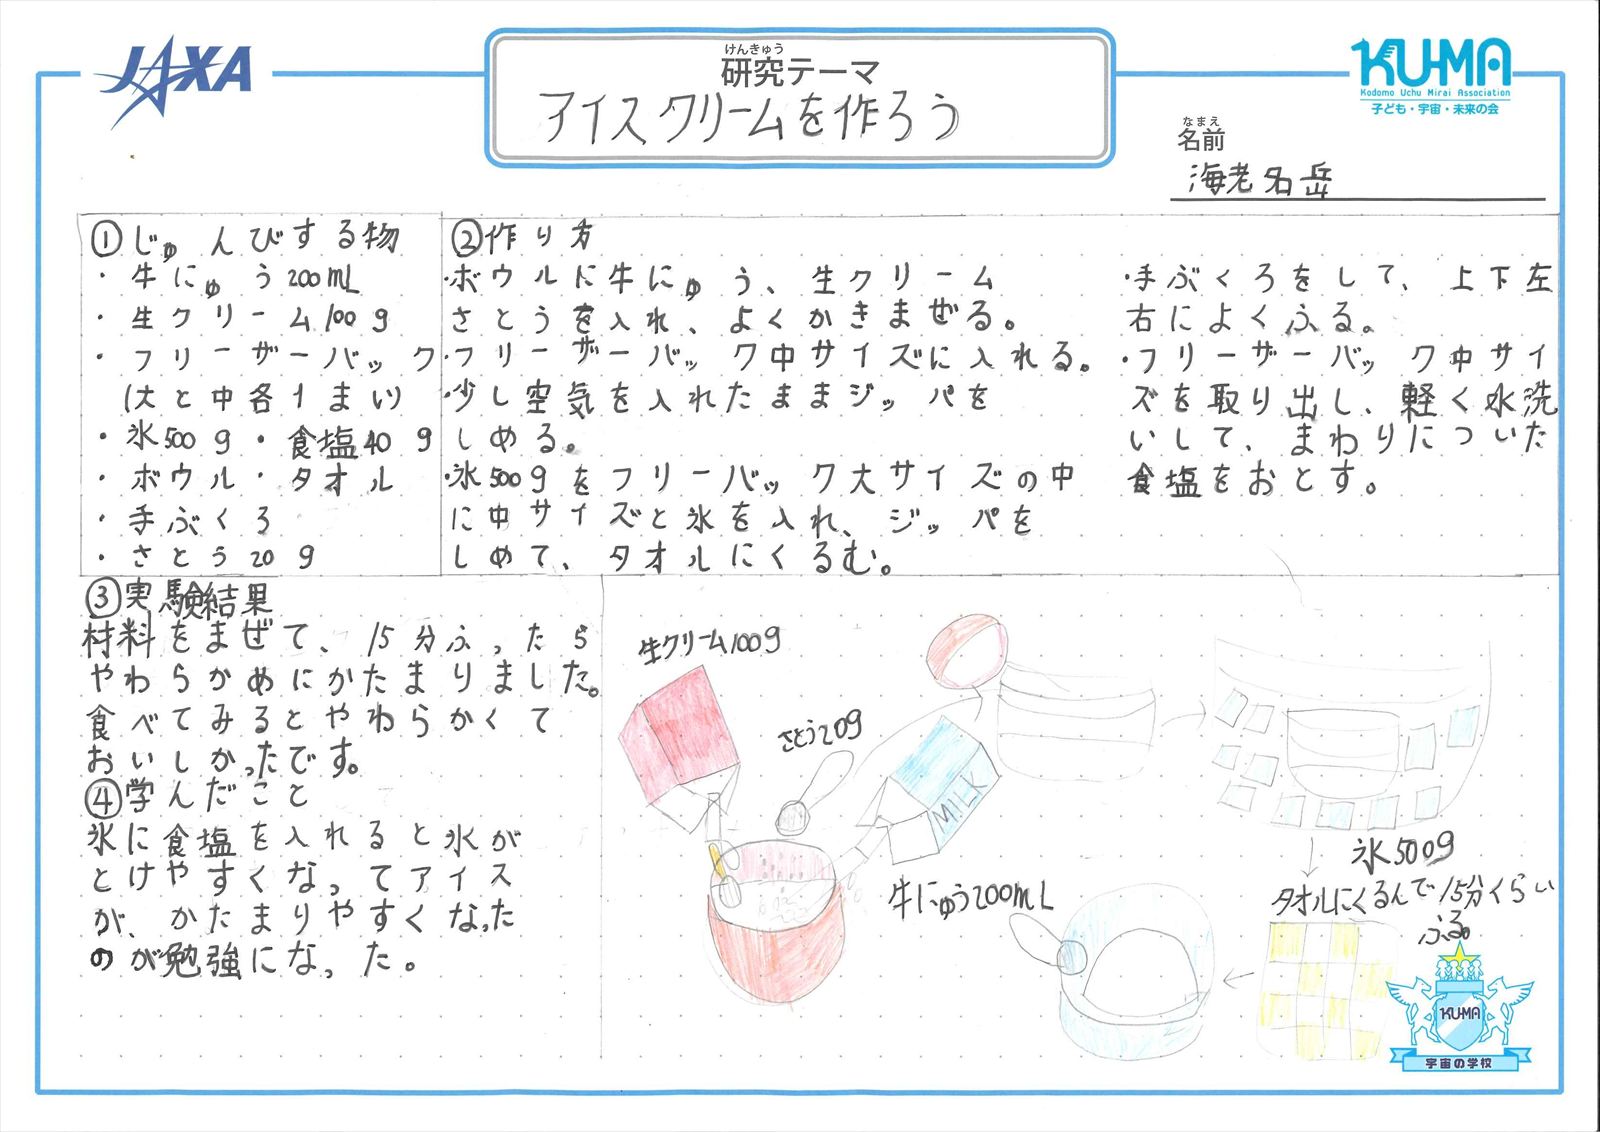 JAXA
けんきゅう
研究テーマ
アイスクリームを作ろう
KU-MA
Kodomo Uchu Mirai Association
子ども・宇宙・未来の会
なまえ
名前
海老名岳
①じゅんびする物
・牛にゅう200mL
・生クリーム100g
・フリーザーバック
(大と中各1まい)
・氷500g・食塩40g
・ボウル・タオル
・手ぶくろ
・さとう20g
②作り方
・ボウルに牛にゅう、生クリーム
さとうを入れ、よくかきまぜる。
・フリーザーバック中サイズに入れる。
・少し空気を入れたままジッパを
しめる。
・氷500gをフリーバック大サイズの中
に中サイズと氷を入れ、ジッパを
しめて、タオルにくるむ。
・手ぶくろをして、上下左
右によくふる。
・フリーザーバック中サイ
ズを取り出し、軽く水洗
いして、まわりについた
食塩をおとす。
③実験結果
材料をまぜて、15分ふったら
やわらかめにかたまりました。
食べてみるとやわらかくて
おいしかったです。
④学んだこと
氷に食塩を入れると氷が
とけやすくなってアイス
が、かたまりやすくなった
のが勉強になった。
生クリーム100g
さとう20g
MILK
牛にゅう200mL
氷500g
タオルにくるんで15分くらい
ふる。
KU-MA
宇宙の学校